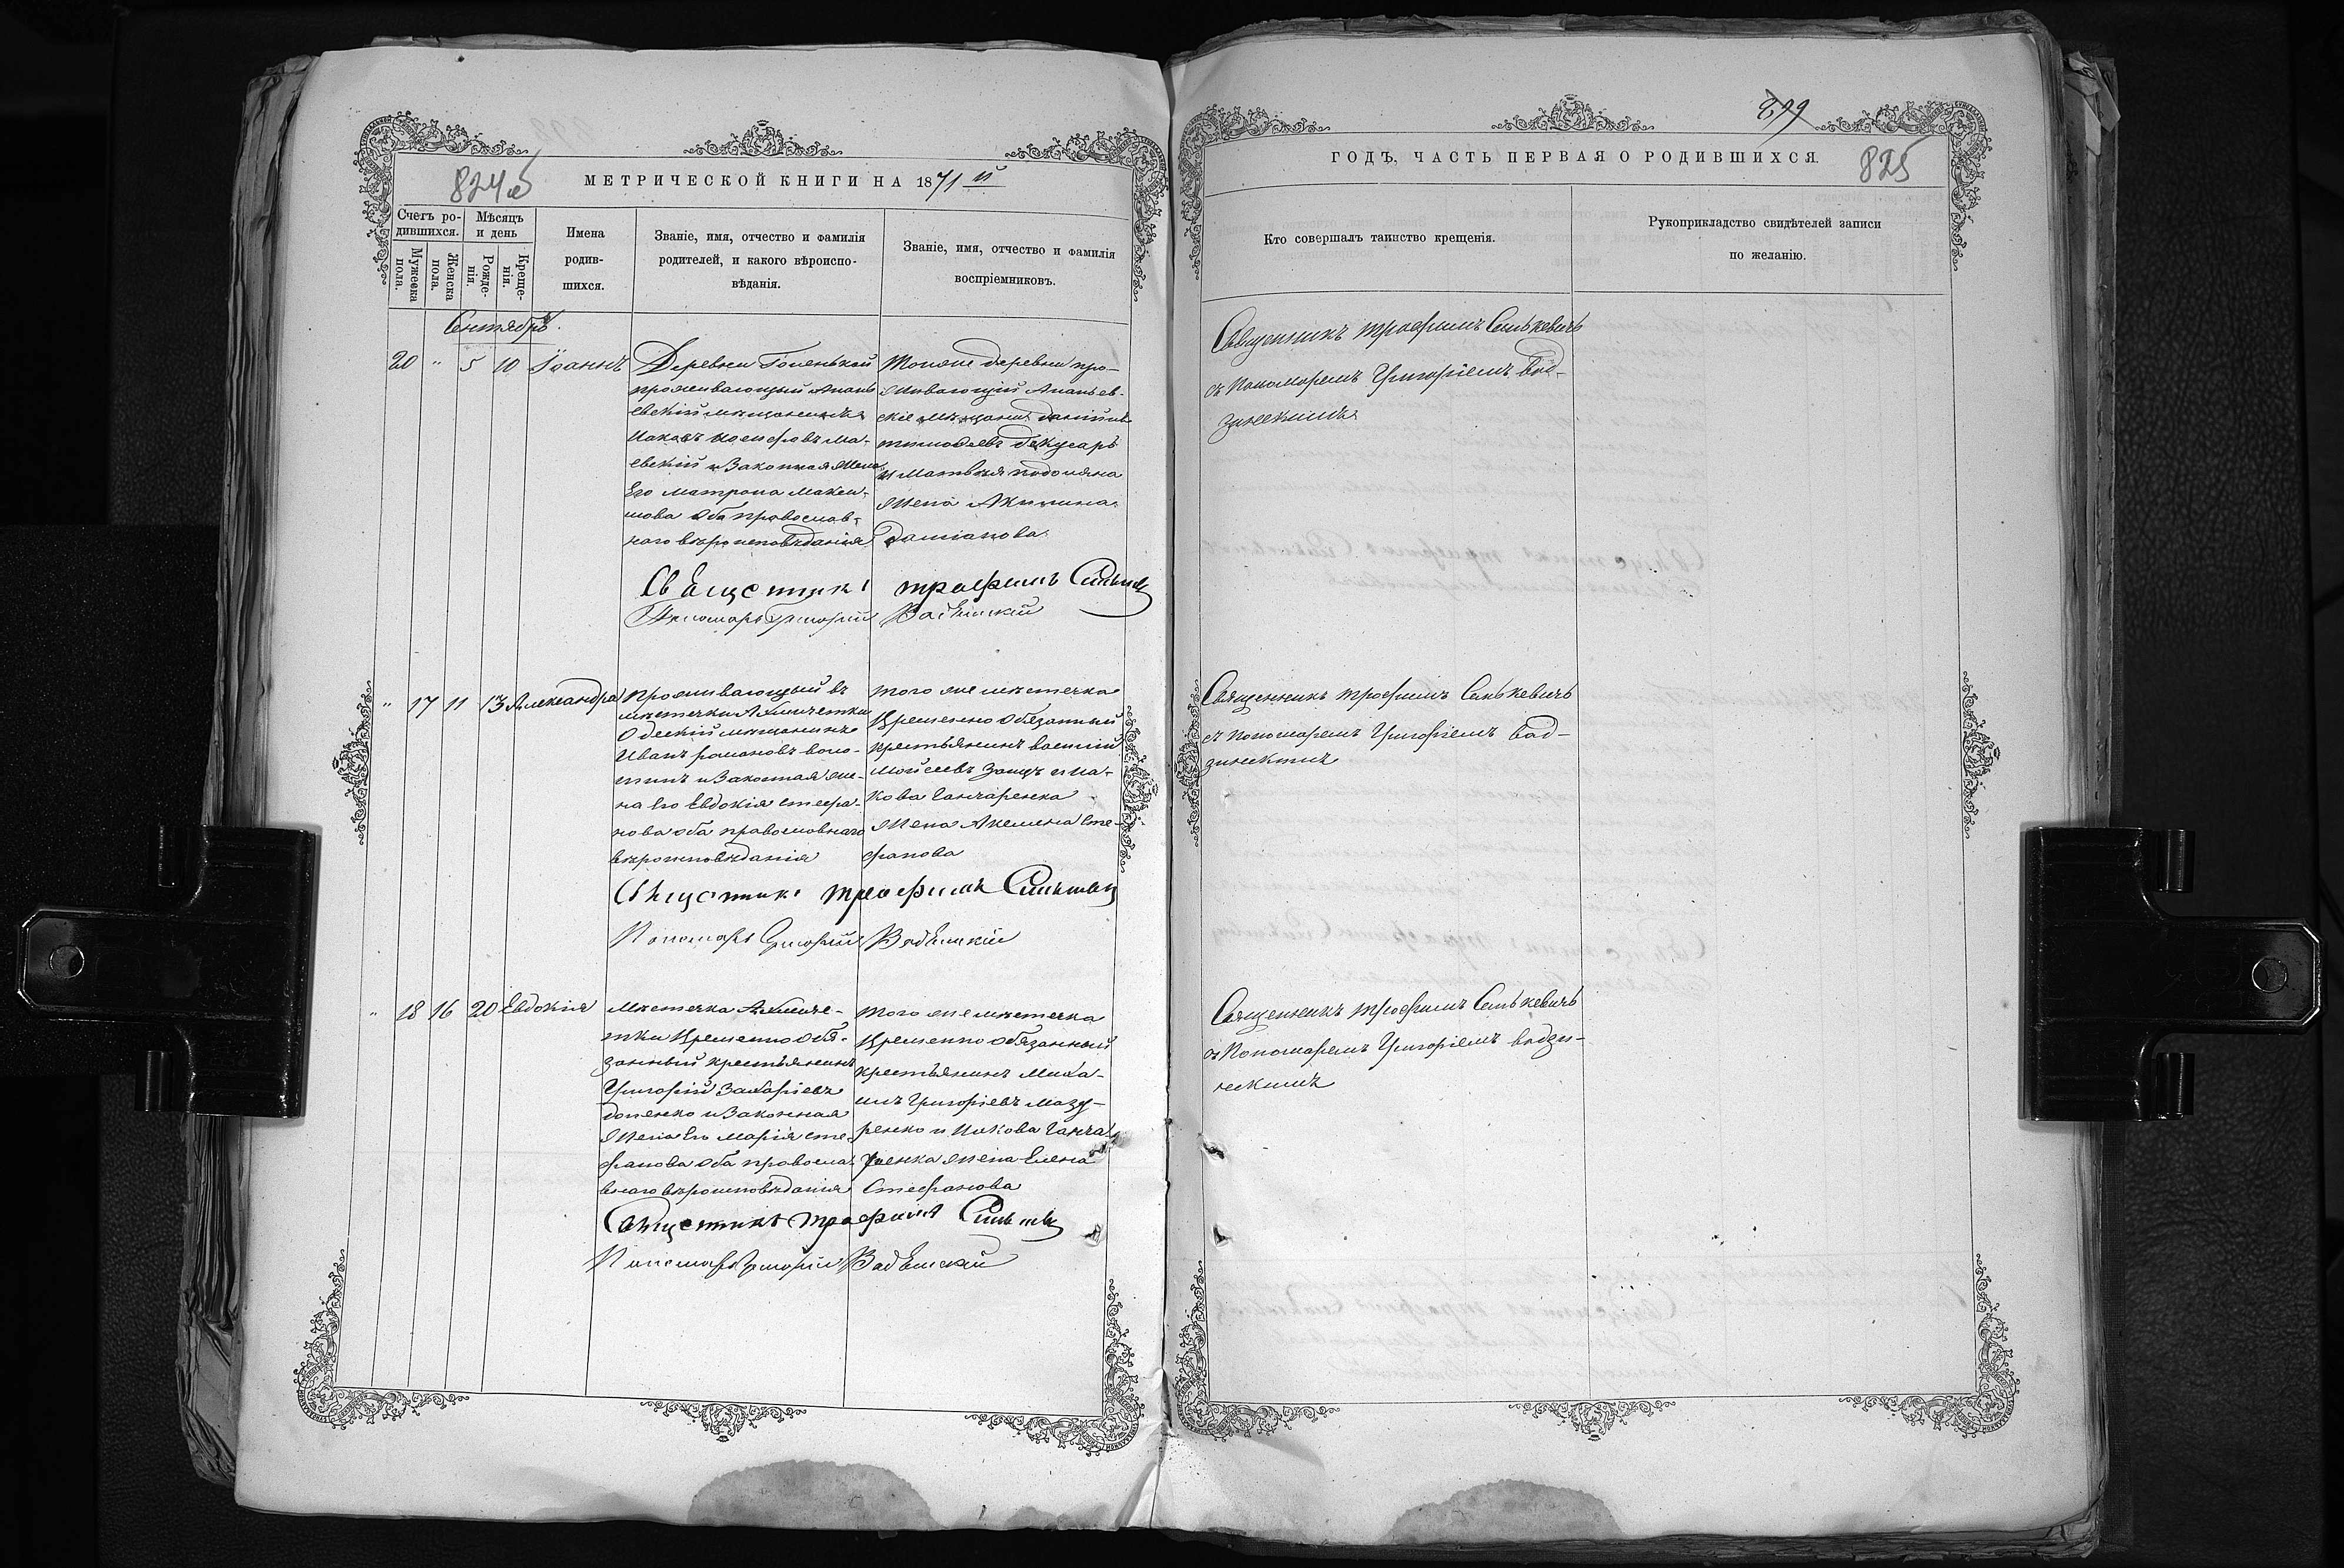 824об
МЕТРИЧЕСКОЙ КНИГИ НА 1871 й
Счетъ ро-
дившихся.
Мужеска
пола.
Женска
пола.
Мѣсяцъ
и день
Рожде-
нія.
Креще-
нія.
Имена
родив-
шихся.
Званіе, имя, отчество и фамилія
родителей, и какого вѣроиспо-
вѣданія.
Званіе, имя, отчество и фамилія
воспріемниковъ.
Сентябрь.
20 " 5 10 Іоаннъ
Деревни
проживающый Анань
евскій мѣщанинъ
Іаковъ Іосифовъ Ма-
евскій и Законная жена
Его Матрона Макси-
мова Оба православ-
наго вѣроисповѣданія
Тойже деревни про-
живающій Ананьев-
скіе мѣщане Даніилъ
Тимофеевъ
и Матвѣя Подоляна
жена Акилина
Даміанова
Священникъ Трофимъ
Пономарь Григорій
" 17 11 13 Александра
Проживающый въ
мѣстечки Ахмичетки
Одескій мѣщанинъ
Иванъ Романовъ Воло-
шинъ и Законная же-
на Его Евдокія Стефа-
нова оба православнаго
вѣроисповѣданія
того же мѣстечка
Временно Обязанный
крестьянинъ Василій
Мойсеевъ Заяцъ и Іа-
кова Ганчаренка
жена Акелина Сте-
фанова
Священникъ Трофимъ
Пономарь Григорій
" 18 16 20 Евдокія
Мѣстечка Ахмиче-
тки Временно обя-
занный крестьянинъ
Григорій Захаріевъ
Доненко и Законная
жена Его Марія Сте-
фанова Оба правосла-
внаго вѣроисповѣданія
того же мѣстечка
Временно обязанный
крестьянинъ Миха-
илъ Григоріевъ Мазу-
ренко и Іакова Ганча-
ренка жена Елена
Стефанова
Священникъ Трофимъ
Пономарь Григорій
899
825
ГОДЪ, ЧАСТЬ ПЕРВАЯ О РОДИВШИХСЯ.
Кто совершалъ таинство крещенія.
Рукоприкладство свидѣтелей записи
по желанію.
Священникъ Трофимъ Синькевичъ
съ Пономаремъ Григоріемъ Вад-
зинскимъ
Священникъ Трофимъ Синькевичъ
съ пономаремъ Григоріемъ Вад-
зинскимъ
Священникъ Трофимъ Синькевичъ
съ Пономаремъ Григоріемъ Вадзи-
нскимъ